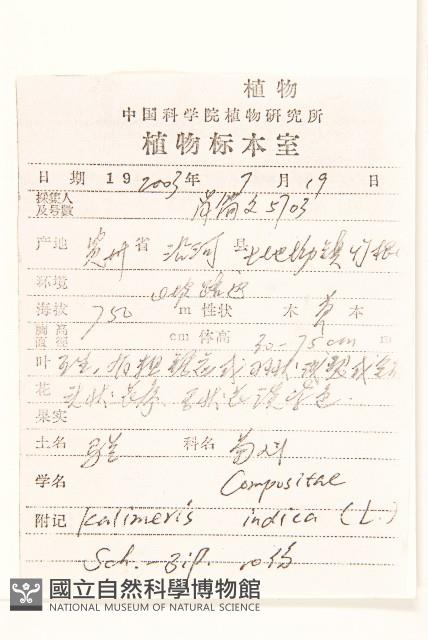 植物
中国科学院植物研究所
植物标本室
日 期 19 2003 年 7 月 19 日
採集人
及号數 5703
产地 贵州 省 沿河 县
环境 山坡路边
海拔 750 m 性状 木 草 本
胸高
直徑 cm 体高 30-75cm m
叶 互生,
花 头状花序,
果实
土名 马兰 科名 菊科
学名 Compositae
附记 Kalimeris indica (L.)
Sch.-Bip.
國立自然科學博物館
NATIONAL MUSEUM OF NATURAL SCIENCE